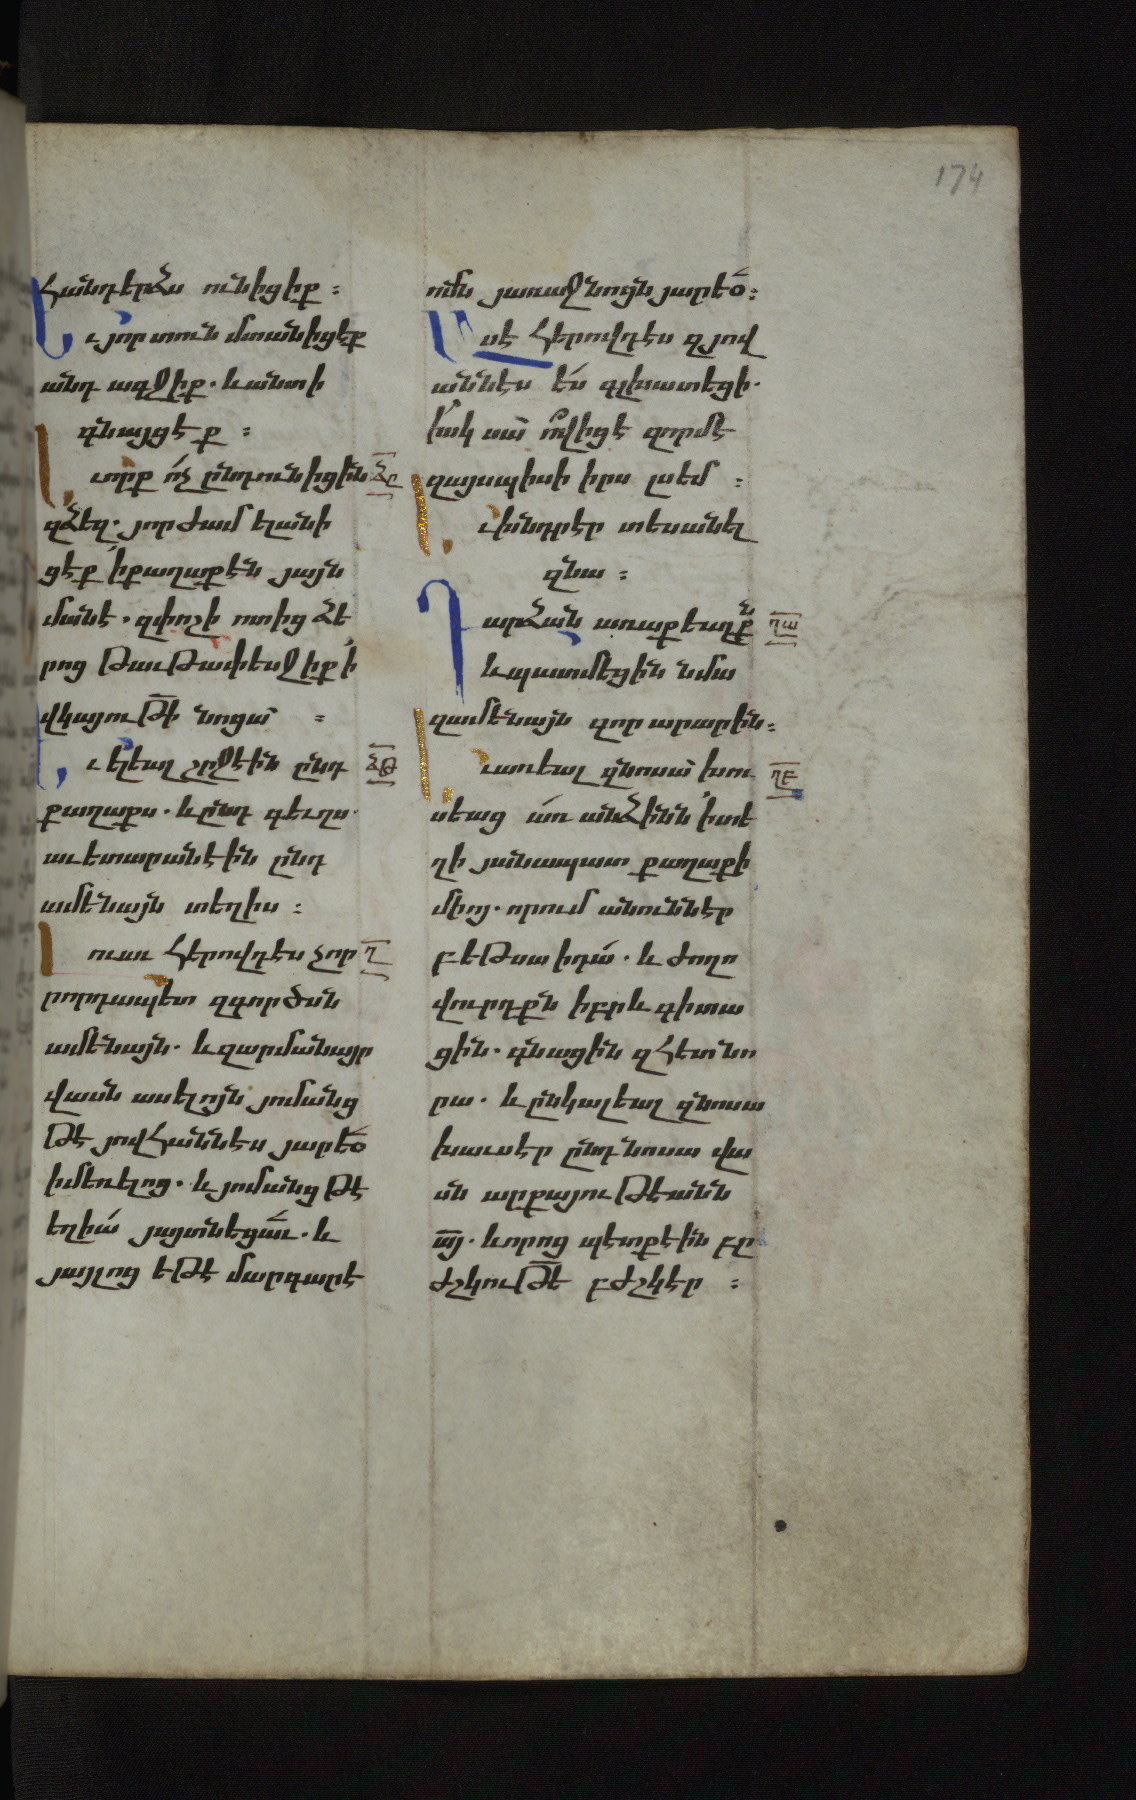 174
հանդերձս ունիցիք ։
Եւ յոր տուն մտանիցէք
անդ ագջիք. և անտի
գնայցէք ։
Եւ որք ոչ ընդունիցին
ձը
զձեզ. յորժամ ելանի
ցէք ՚ի քաղաքէն յայն
մանէ. զփոշի ոտից ձե
րոց թաւթափեսջիք ՚ի
վկայութի նոցա ։
Եւ ելեալ շրջէին ընդ
ձթ
քաղաքս. և ընդ գեւղս.
աւետարանէին ընդ
ամենայն տեղիս ։
Լուաւ հերովդէս չոր
ղ
րորդապետ զգործսն
ամենայն. և զարմանայր
վասն ասելոյն յոմանց
թէ յովհաննէս յարեօ
ի մեռելոց. և յոմանց թէ
եղիա յայտնեցաւ. և
յայլոց եթէ մարգարէ
ոմն յառաջնոցն յարեօ ։
Ասէ հերովդէս զյով
աննէս ես գլխատեցի.
իսկ սա ո՞վ իցէ զորմէ
զայսպիսի իրս լսեմ ։
Եւ խնդրէր տեսանել
զնա ։
Դարձան առաքեալքն
ղա
և պատմեցին նմա
զամենայն զոր արարին ։
Եւ առեալ զնոսա խու
ղբ
սեաց առ անձինն ՚ի տե
ղի յանապատ քաղաքի
միոյ. որում անուն էր
բեթսաիդա. և ժողո
վուրդքն իբրև գիտա
ցին. գնացին զհետ նո
րա. և ընկալեալ զնոսա
խաւսէր ընդ նոսա վա
սն արքայութեանն
այ. և որոց պէտք էին բը
ժշկութե բժշկէր ։